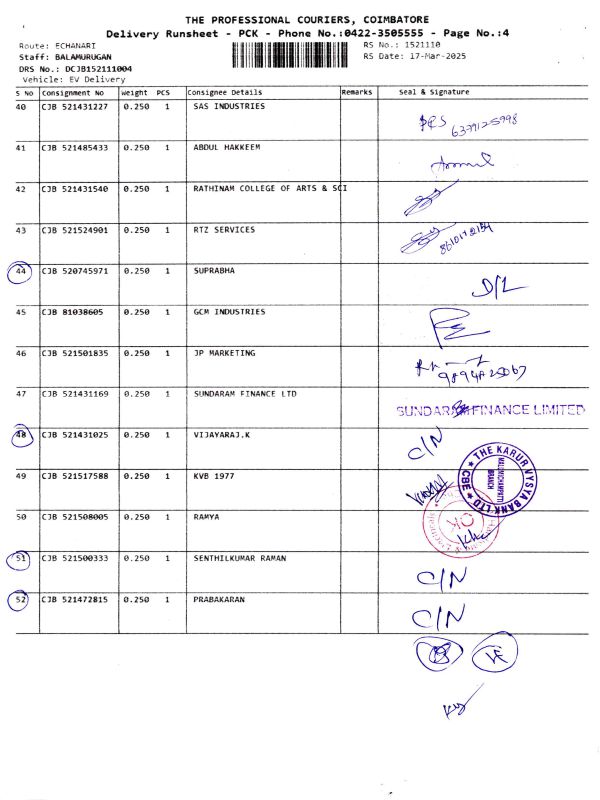 THE PROFESSIONAL COURIERS, COIMBATORE
Delivery Runsheet - PCK - Phone No.:0422-3505555 - Page No.:4
Route: ECHANARI RS No.: 1521110
Staff: BALAMURUGAN RS Date: 17-Mar-2025
DRS No.: DCJB152111004
Vehicle: EV Delivery
S No Consignment No Weight PCS Consignee Details Remarks Seal & Signature
40 CJB 521431227 0.250 1 SAS INDUSTRIES
41 CJB 521485433 0.250 1 ABDUL HAKKEEM
42 CJB 521431540 0.250 1 RATHINAM COLLEGE OF ARTS & SCI
43 CJB 521524901 0.250 1 RTZ SERVICES
44 CJB 520745971 0.250 1 SUPRABHA D/L
45 CJB 81038605 0.250 1 GCM INDUSTRIES
46 CJB 521501835 0.250 1 JP MARKETING
47 CJB 521431169 0.250 1 SUNDARAM FINANCE LTD SUNDARAM FINANCE LIMITED
48 CJB 521431025 0.250 1 VIJAYARAJ.K C/N
THE KARUR VYSYA BANK LTD
CBE
BRANCH
49 CJB 521517588 0.250 1 KVB 1977
50 CJB 521508005 0.250 1 RAMYA OK
51 CJB 521500333 0.250 1 SENTHILKUMAR RAMAN C/N
52 CJB 521472815 0.250 1 PRABAKARAN C/N